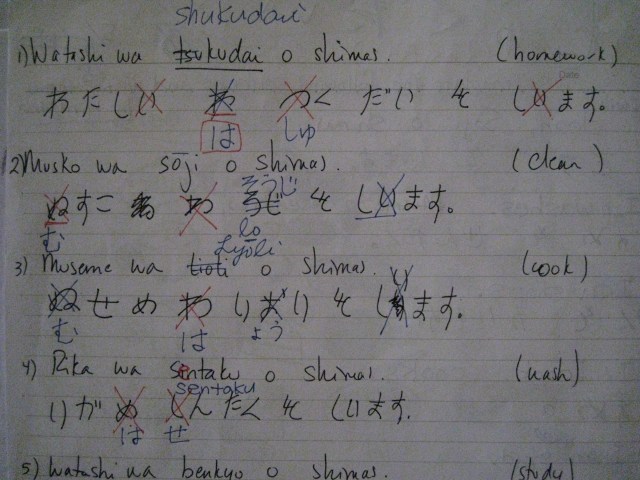 shukudai
1) Watashi wa tsukudai o shimas. (homework)
わたしい わ つく だい を しいます。
は しゅ
2) Musko wa sōji o shimas. (clean)
そうじ
ぬすこ わ を しいます。
む
lo
Lyōli
3) Museme wa o shimas. (cook)
ぬせめ わ りおり を します。
む は ょう
4) Rika wa sentaku o shimas. (wash)
sentaku
りが め しんたく を しいます.
は せ
5) Watashi wa benkyo o shimas. (study)